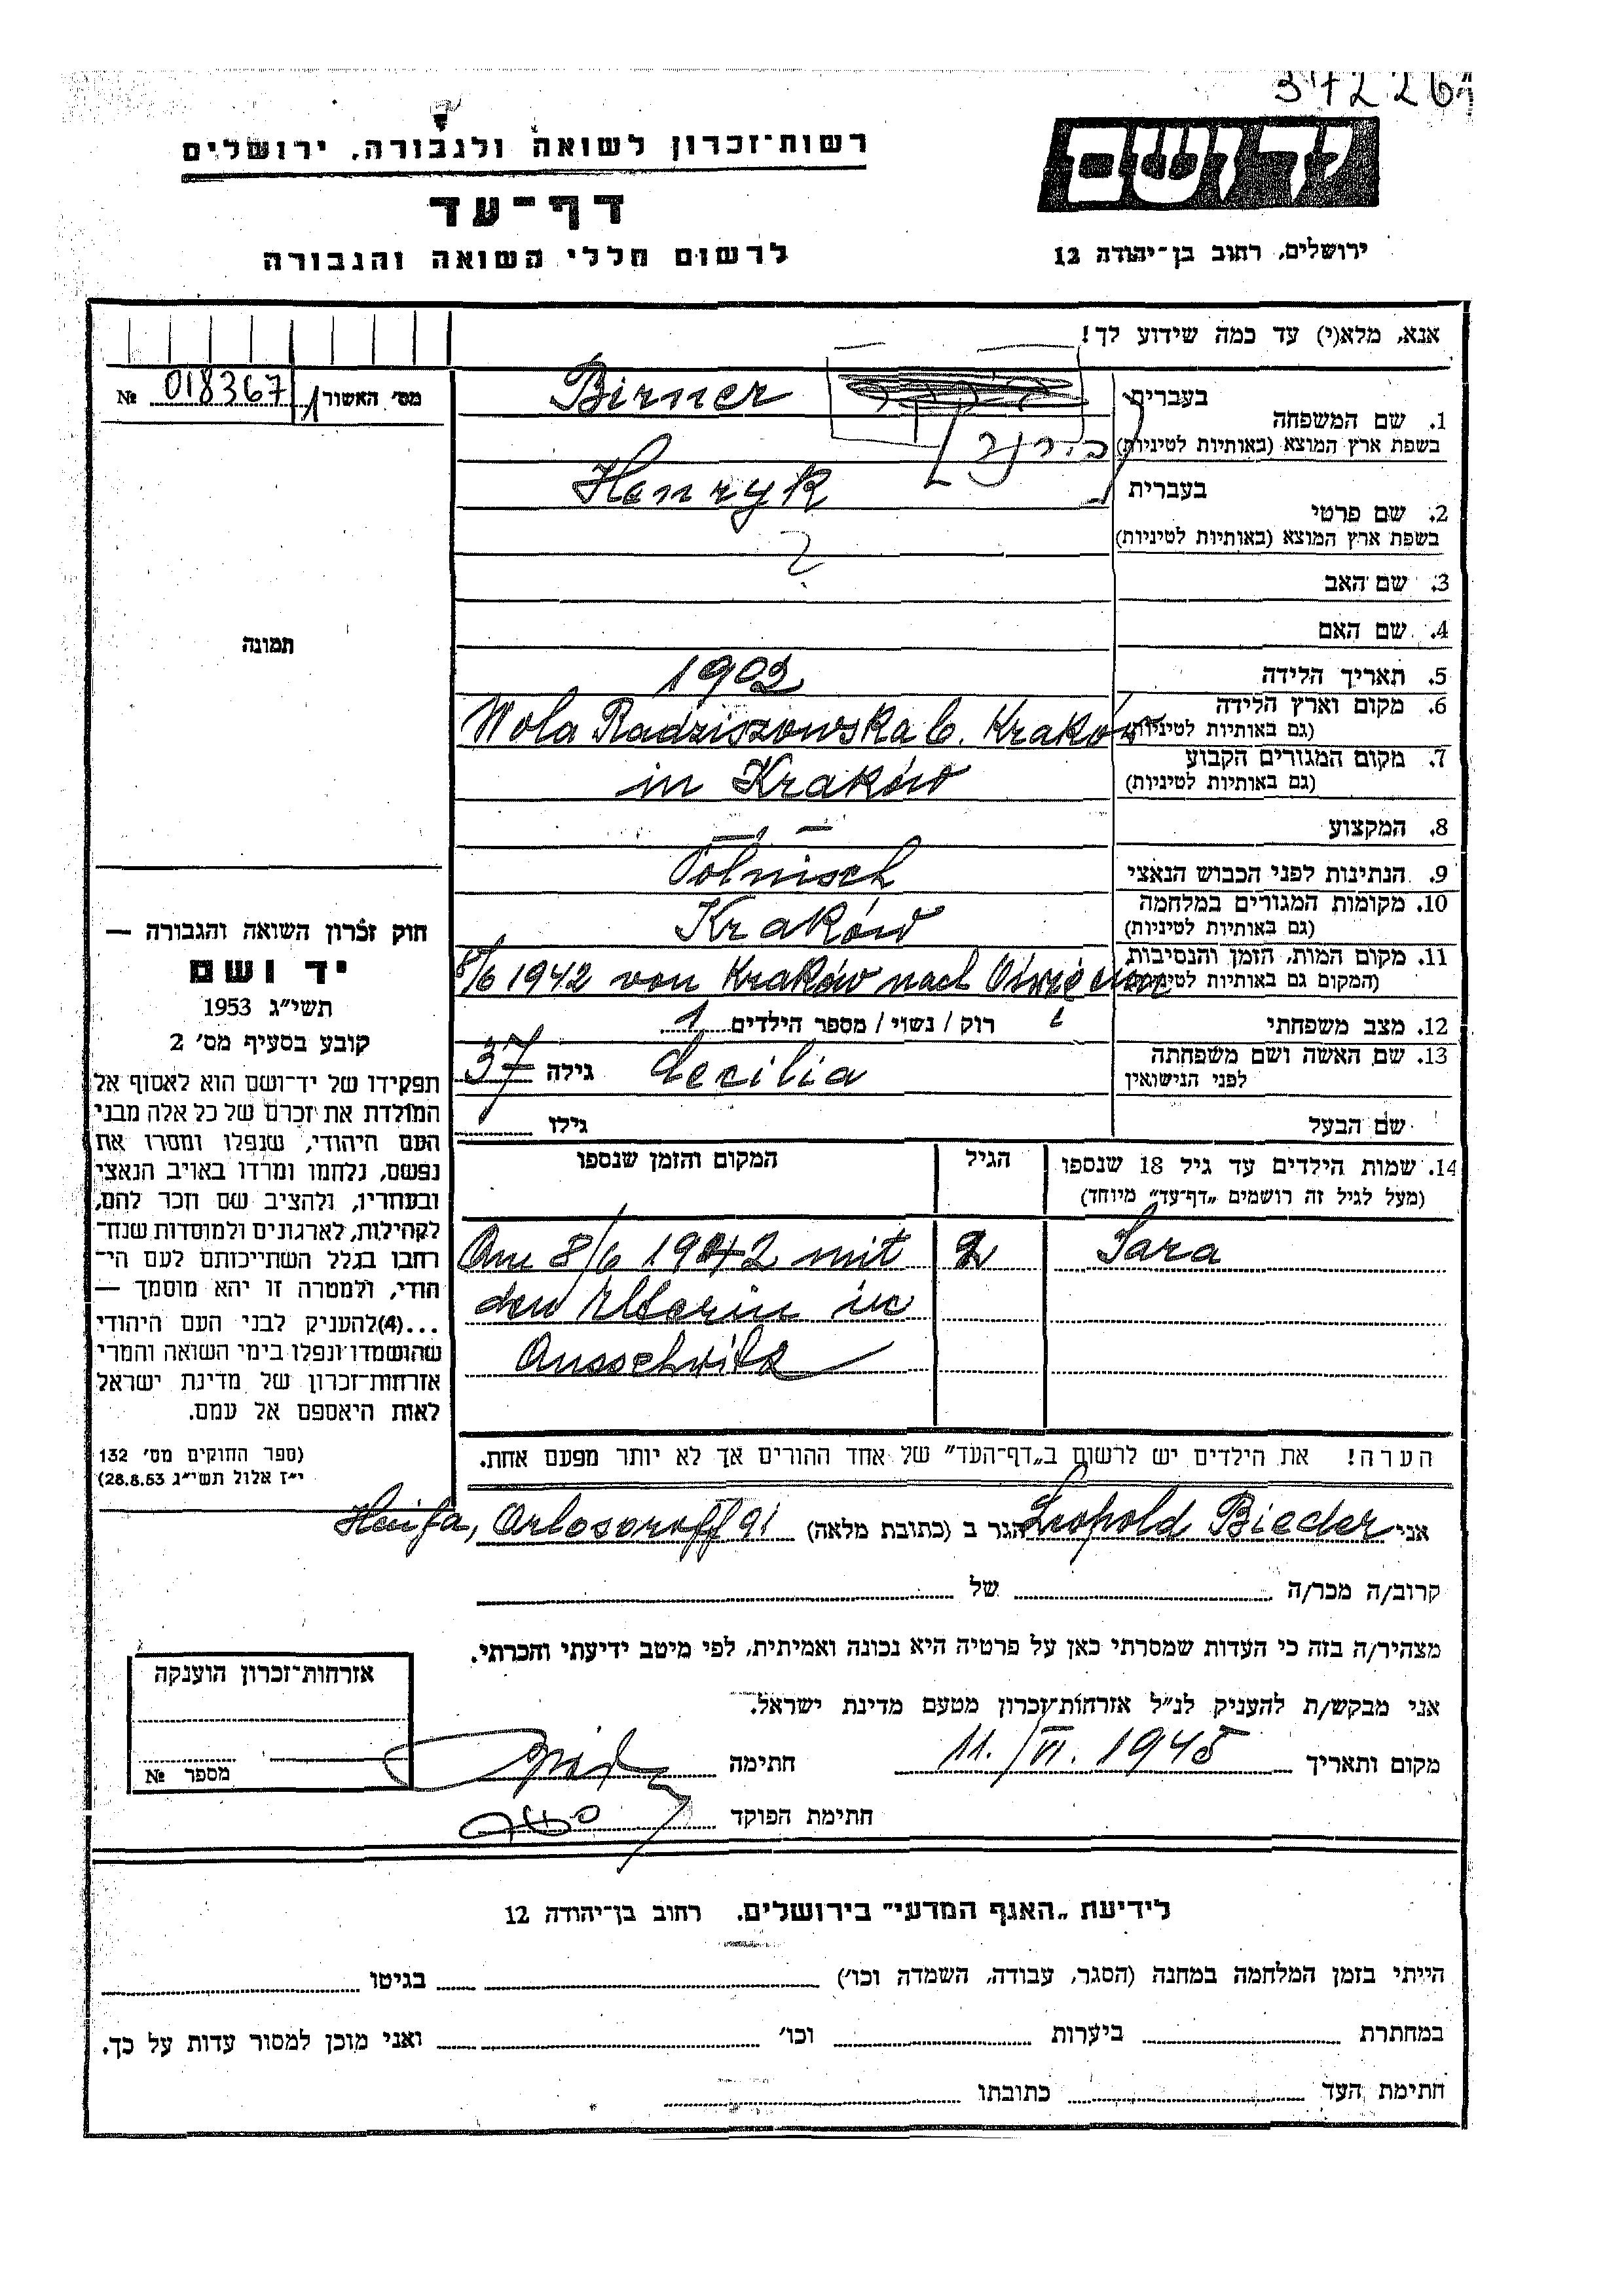 37226
רשות־זכרון לשואה ולגבורה, ירושלים
יד ושם
דף־עד
לרשום חללי השואה והגבורה
ירושלים, רחוב בן־יהודה 12
אנא, מלא(י) עד כמה שידוע לך!
מס׳ האשור 1 018367 №
1. שם המשפחה
בעברית
בירנר
Birner
בשפת ארץ המוצא (באותיות לטיניות)
2. שם פרטי
בעברית
Henryk
בשפת ארץ המוצא (באותיות לטיניות)
?
3. שם האב
4. שם האם
5. תאריך הלידה 1902
6. מקום וארץ הלידה
(גם באותיות לטיניות)
Wola Radziszowska b. Kraków
7. מקום המגורים הקבוע
(גם באותיות לטיניות)
in Kraków
8. המקצוע — —
9. הנתינות לפני הכבוש הנאצי Polnisch
10. מקומות המגורים במלחמה
(גם באותיות לטיניות)
Kraków
11. מקום המות, הזמן והנסיבות
(המקום גם באותיות לטיניות)
8/6 1942 von Kraków nach Oświęcim
12. מצב משפחתי רוק / נשוי / מספר הילדים 1
13. שם האשה ושם משפחתה
לפני הנישואין
Cecilia גילה 37
שם הבעל גילו
14. שמות הילדים עד גיל 18 שנספו
(מעל לגיל זה רושמים „דף־עד” מיוחד)
הגיל
המקום והזמן שנספו
Sara 2 Am 8/6 1942 mit
den Eltern in
Ausschwitz
הערה! את הילדים יש לרשום ב„דף־העד” של אחד ההורים אך לא יותר מפעם אחת.
תמונה
חוק זכרון השואה והגבורה —
יד ושם
תשי״ג 1953
קובע בסעיף מס׳ 2
תפקידו של יד־ושם הוא לאסוף אל
המולדת את זכרם של כל אלה מבני
העם היהודי, שנפלו ומסרו את
נפשם, נלחמו ומרדו באויב הנאצי
ובעוזריו, ולהציב שם וזכר להם,
לקהילות, לארגונים ולמוסדות שנח־
רבו בגלל השתייכותם לעם הי־
הודי, ולמטרה זו יהא מוסמך —
...(4) להעניק לבני העם היהודי
שהושמדו ונפלו בימי השואה והמרי
אזרחות־זכרון של מדינת ישראל
לאות היאספם אל עמם.
(ספר החוקים מס׳ 132
י״ז אלול תשי״ג 28.8.53)
אני Leopold Bieder הגר ב (כתובת מלאה) Haifa, Orlosoroff 91
קרוב/ה מכר/ה של
מצהיר/ה בזה כי העדות שמסרתי כאן על פרטיה היא נכונה ואמיתית, לפי מיטב ידיעתי והכרתי.
אני מבקש/ת להעניק לנ״ל אזרחות־זכרון מטעם מדינת ישראל.
מקום ותאריך 11./VI. 1945 חתימה
חתימת הפוקד
אזרחות־זכרון הוענקה
מספר №
לידיעת „האגף המדעי” בירושלים. רחוב בן־יהודה 12
הייתי בזמן המלחמה במחנה (הסגר, עבודה, השמדה וכו׳) בגיטו
במחתרת ביערות וכו׳ ואני מוכן למסור עדות על כך.
חתימת העד כתובתו